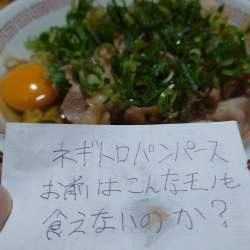 ネギトロパンパース
お前はこんなモノも
食えないのか?